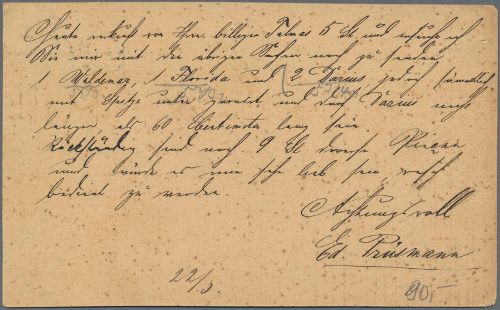 Heute erhielt von Ihnen billigen Talmas 15 St und ersuche ich
Sie mir mit die übrigen Sachen noch zu senden
1 Waldemar, 1 Florida und 2 Darius jedoch sämmtlich
mit Spitze unten garnirt und darf Darius nicht
länger als 60 Centimeter lang sein
Rückständig sind noch 9 St
und würde es mir sehr lieb sein rasch
bedient zu werden.
Achtungsvoll
Ed. Prüsmann
22/3.
90,-